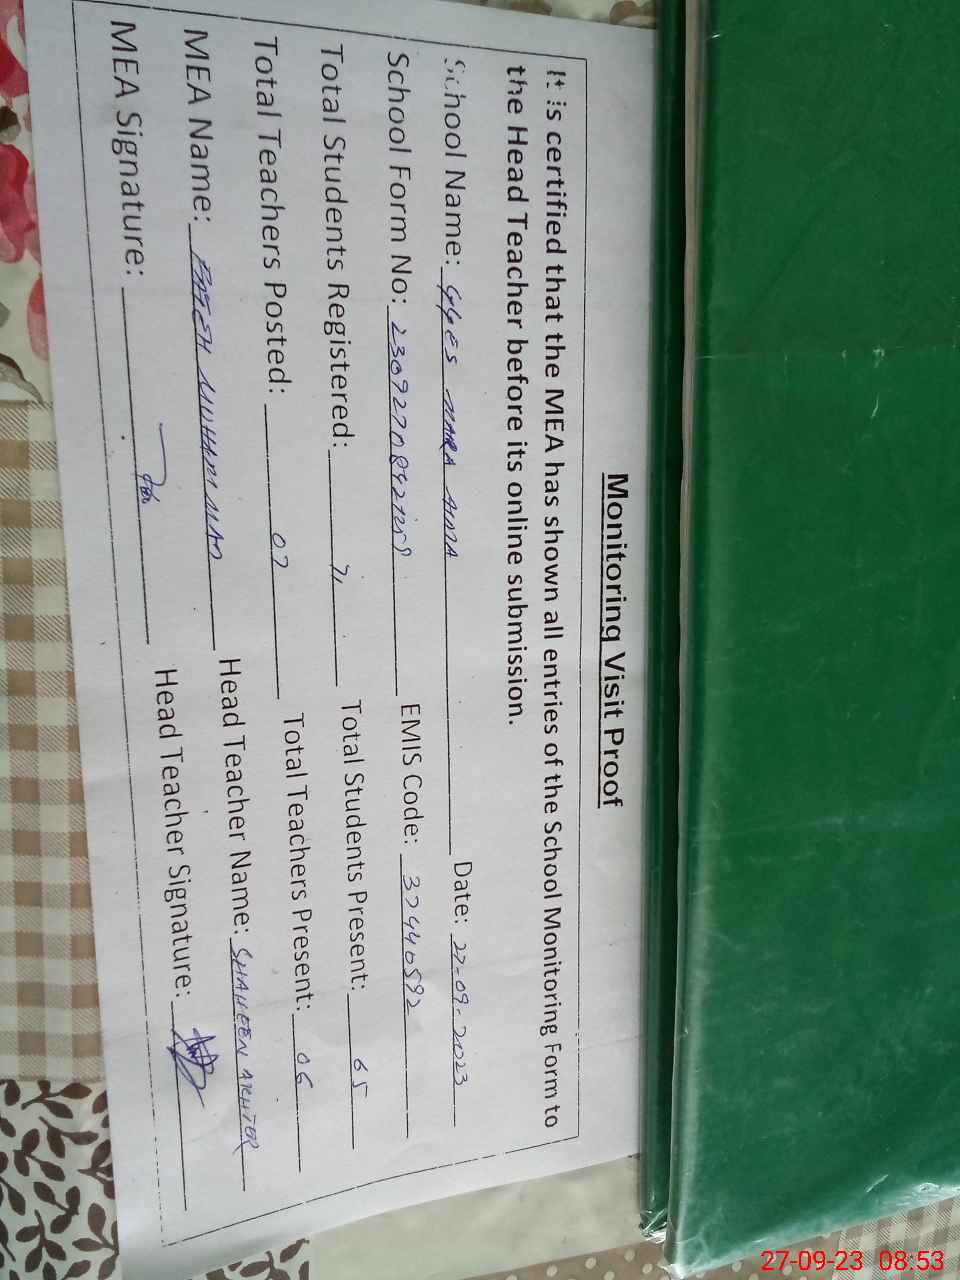 Monitoring Visit Proof
It is certified that the MEA has shown all entries of the School Monitoring Form to
the Head Teacher before its online submission.
School Name: GGES MARA AIMA Date: 27-09-2023
School Form No: EMIS Code: 37440592
Total Students Registered: 71 Total Students Present: 65
Total Teachers Posted: 07 Total Teachers Present: 06
MEA Name: FATEH MUHAMMAD Head Teacher Name: SHAHEEN AKHTER
MEA Signature: Head Teacher Signature:
27-09-23 08:53